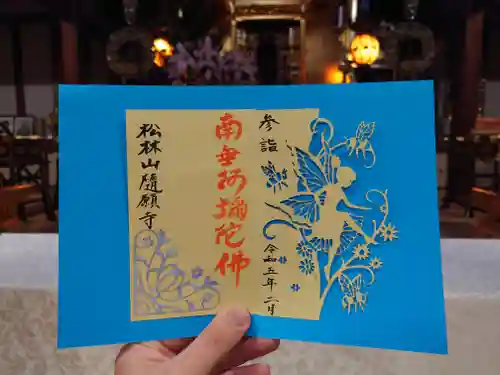 参詣
南無阿弥陀佛
令和五年二月
松林山隨願寺